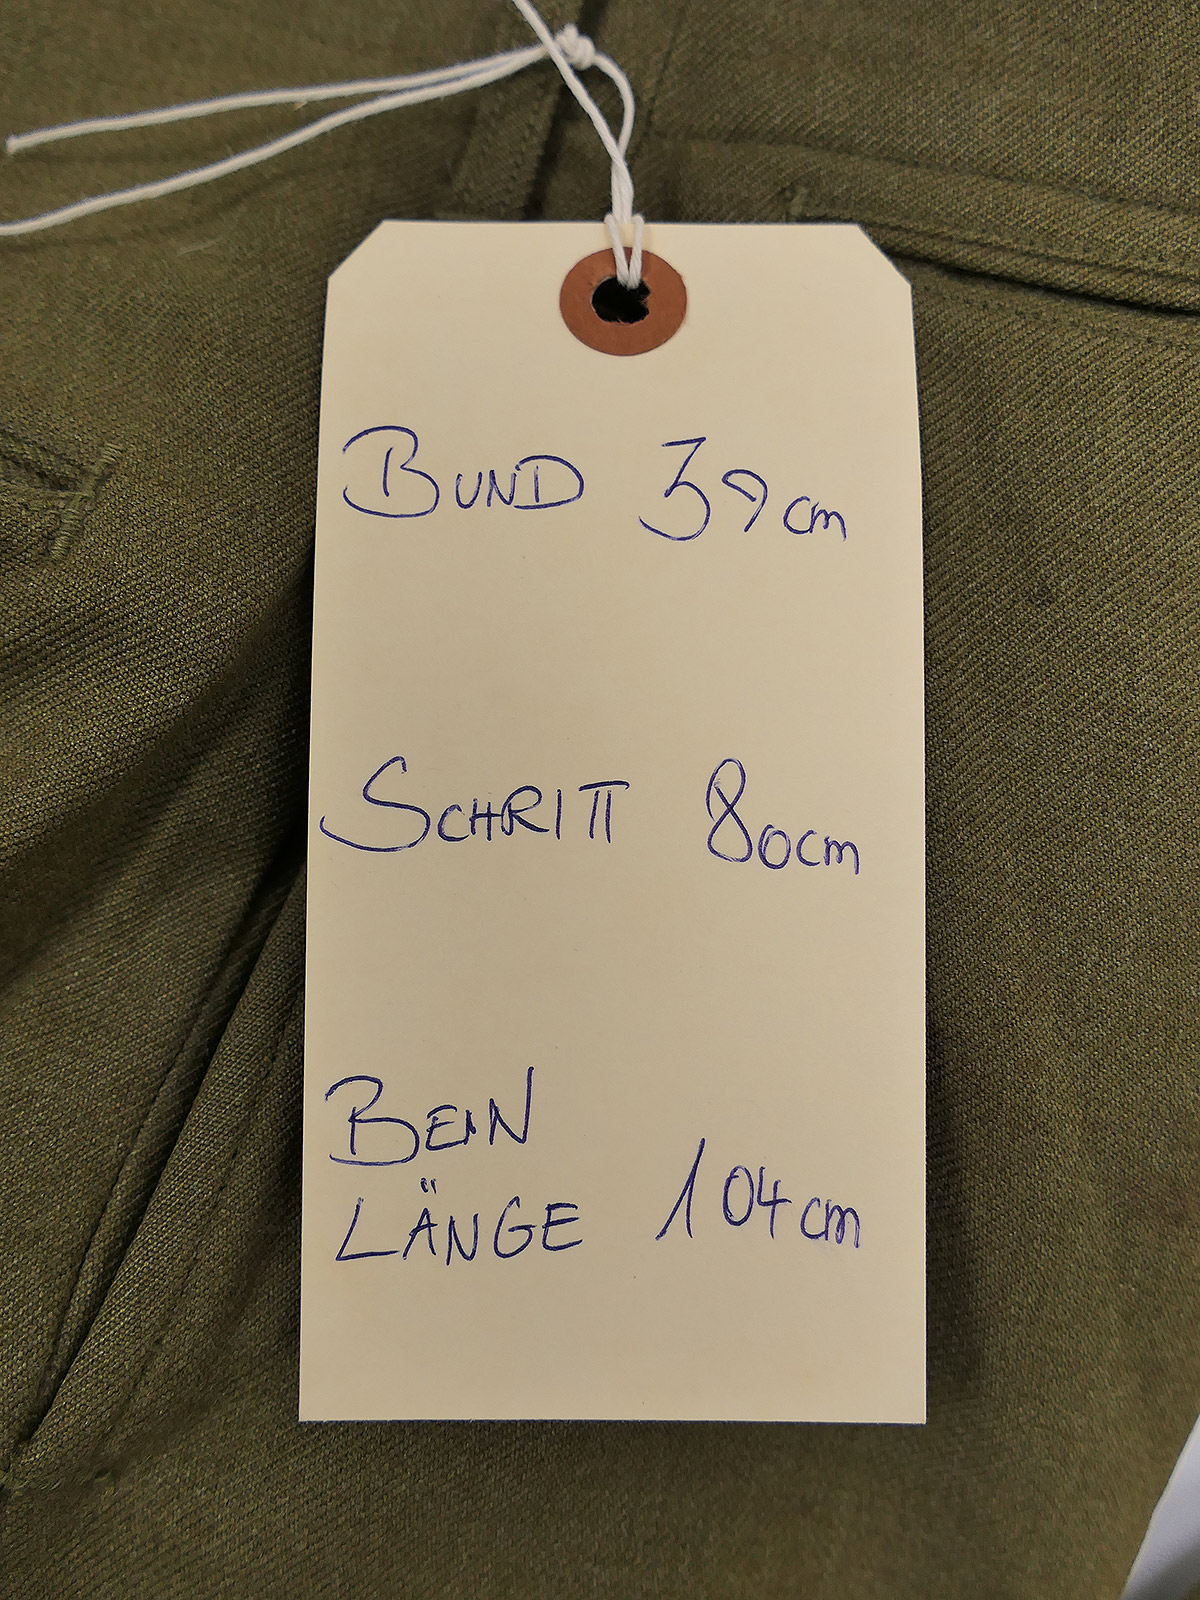 BUND 39cm
SCHRITT 80cm
BEIN
LÄNGE 104cm